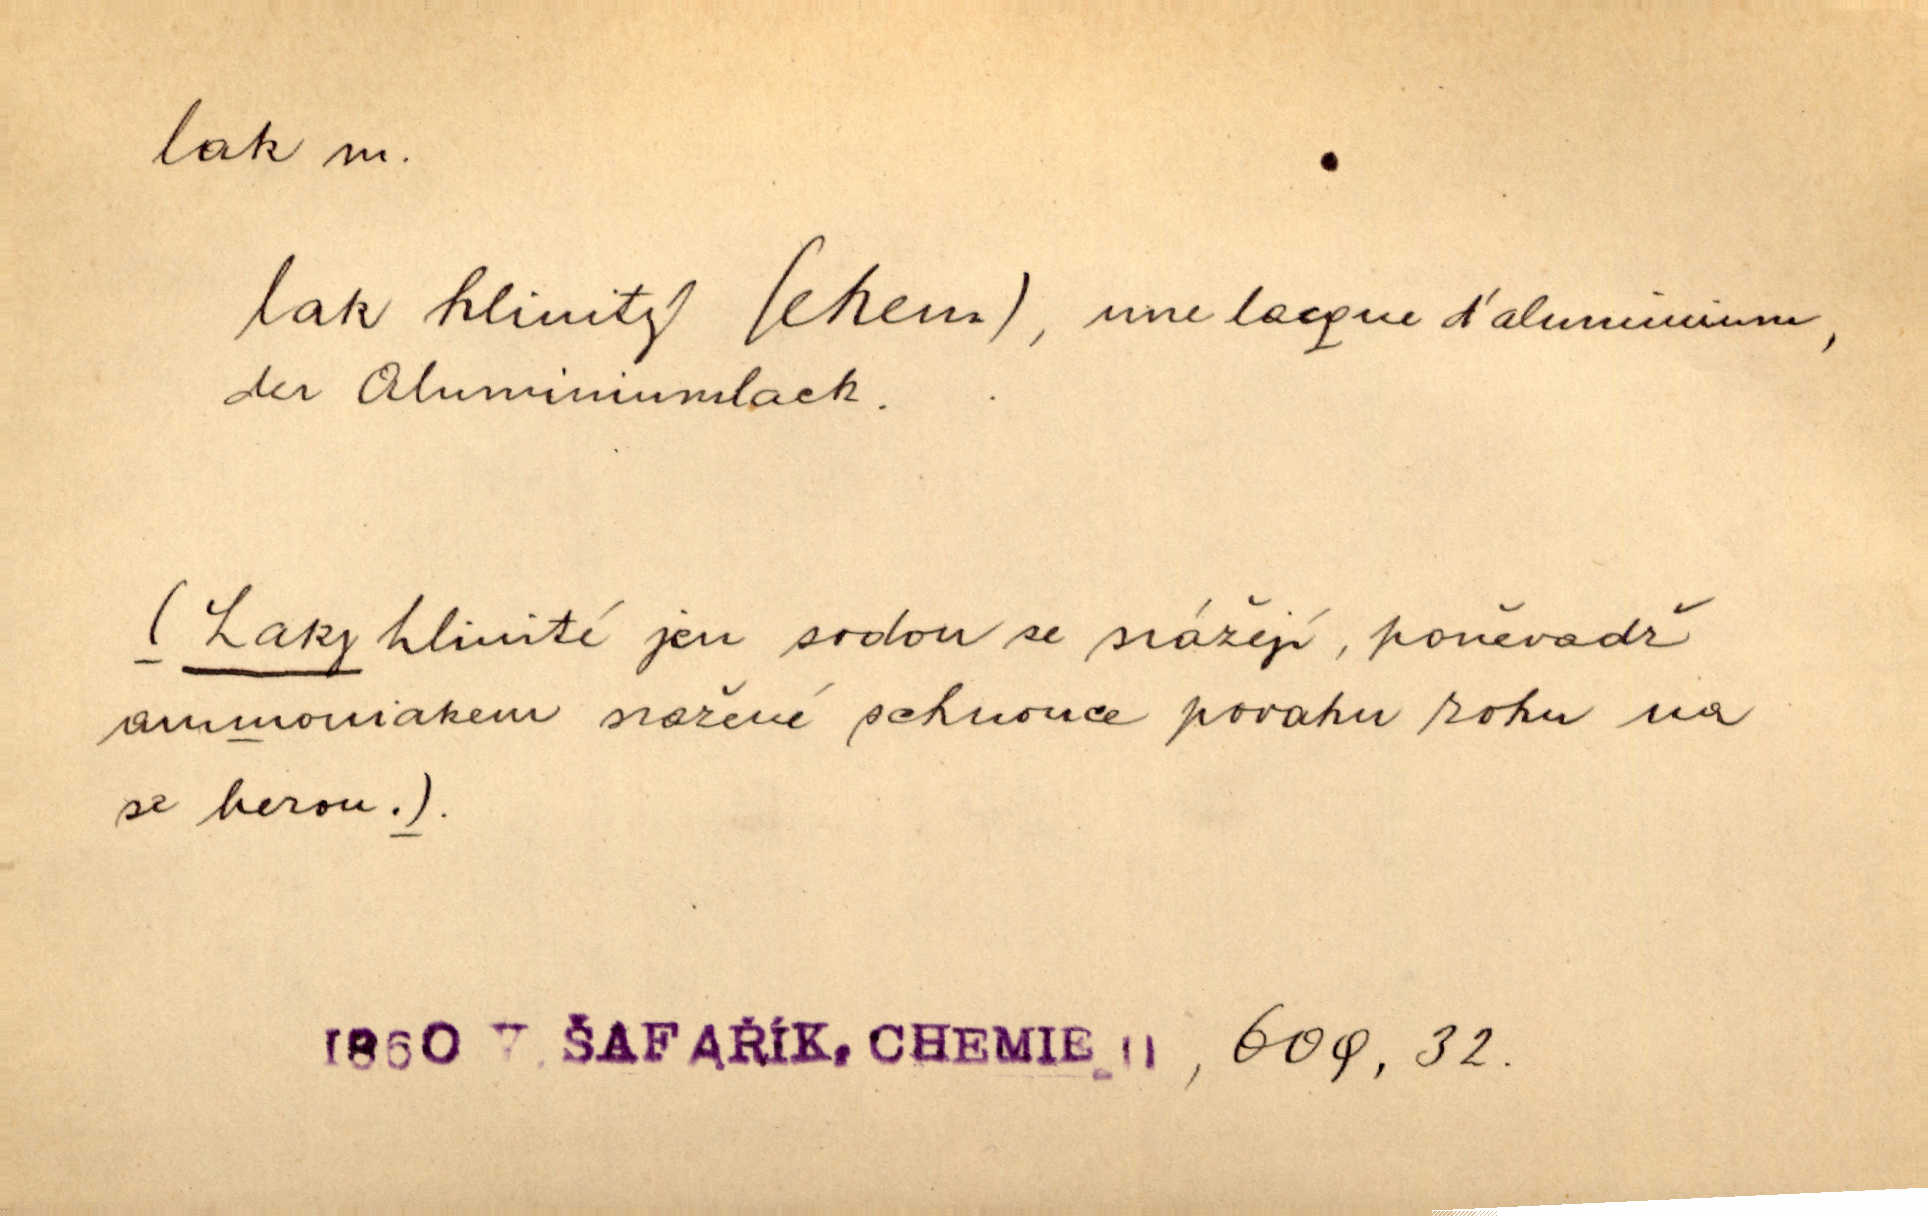 lak m.
lak hlinitý (chem), une lacque d'aluminium,
der Aluminiumlack.
(Laky hlinité jen sodou se srážejí, poněvadž
ammoniakem sražené schnouce povahu rohu na
se berou.).
1860 V. ŠAFAŘÍK, CHEMIE II, 609, 32.